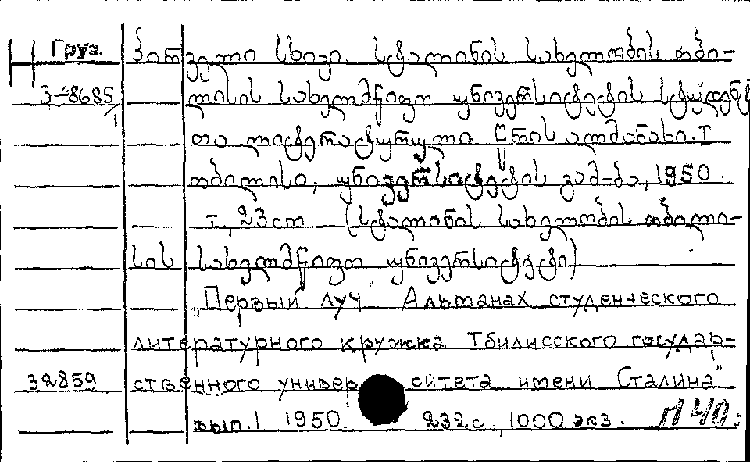 Груз. პირველი სხივი. სტალინის სახელობის თბი-
3-8685/1 ლისის სახელმწიფო უნივერსიტეტის სტუდენტ
თა ლიტერატურული წრის ალმანახი. I
თბილისი, უნივერსიტეტის გამ-ბა, 1950.
т, 23 см (სტალინის სახელობის თბილი-
სის სახელმწიფო უნივერსიტეტი)
„Первый луч" Альманах студенческого
литературного кружка Тбилисского государ-
32859 ственного университета имени Сталина"
вып. 1 1950. 232 с., 1000 экз.